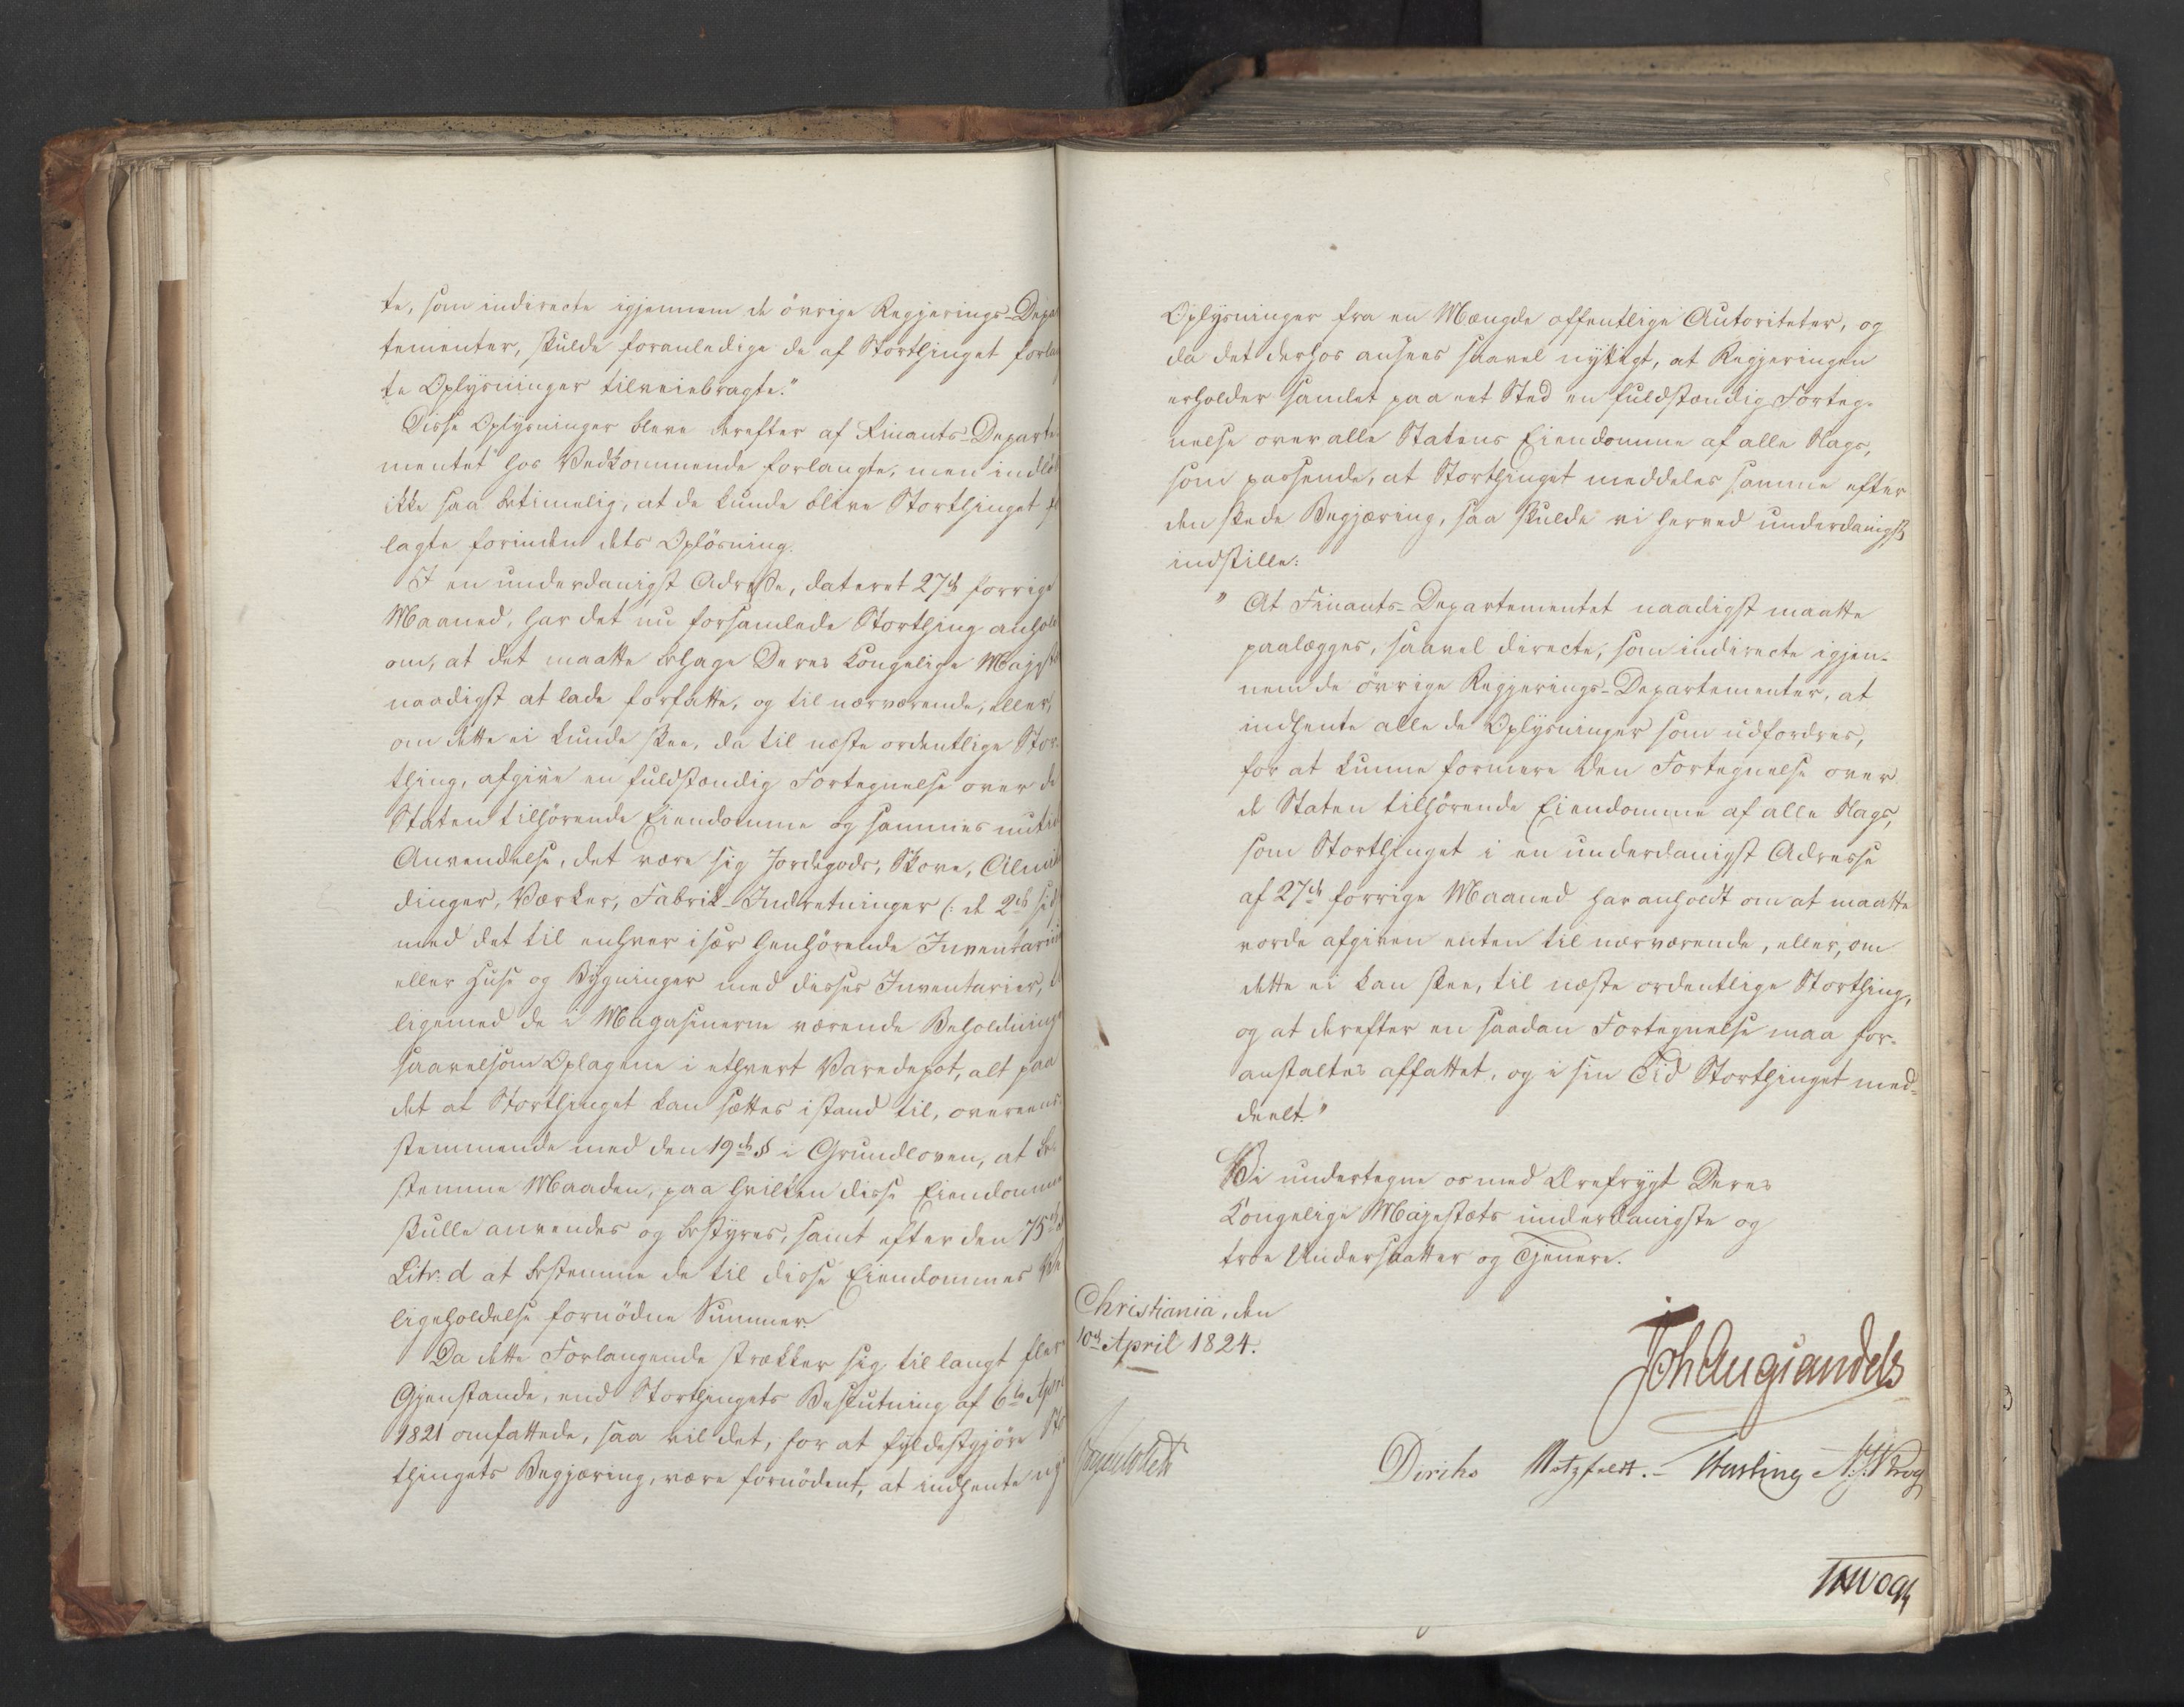 te, som indirecte igjennem de övrige Regjerings-Depar
tementer, skulde foranledige de af Storthinget forlan
te Oplysninger tilveiebragte."
Disse Oplysninger bleve derefter af Finants-Departe-
mentet hos Vedkommende forlangte, men indlöb
ikke saa betimelig, at de kunde blive Storthinget
lagte forinden dets Oplösning.
I en underdanigst Adresse, dateret 27de forrige
Maaned, har det nu forsamlede Storthing anhold
om, at det maatte behage Deres Kongelige Majest
naadigst at lade forfatte, og til nærværende, eller,
om dette ei kunde skee, da til næste ordentlige Stor-
thing, afgive en fuldstændig Fortegnelse over de
Staten tilhörende Eiendomme og sammes nutid
Anvendelse, det være sig Jordegods, Skove, Almin
dinger, Værker, Fabrik-Indretninger (: de 2de sid
med det til enhver især henhörende Inventarium
eller Huse og Bygninger med disses Inventarier,
ligemed de i Magasinerne værende Beholdninge
saavelsom Oplagene i ethvert Varedepot, alt paa
det at Storthinget kan sættes istand til, overeens-
stemmende med den 19de § i Grundloven, at be-
stemme Maaden, paa hvilken disse Eiendomme
skulle anvendes og bestyres, samt efter den 75de §
Litr: d at bestemme de til disse Eiendommes Ved
ligeholdelse fornödne Summer.
Da dette Forlangende strækker sig til langt flere
Gjenstande, end Storthingets Beslutning af 6te April
1821 omfattede, saa vil det, for at fyldestgjöre Stor
thingets Begjæring, være fornödent, at indhente nye
Oplysninger fra en Mængde offentlige Autoriteter, og
da det derhos ansees saavel nyttigt, at Regjeringen
erholder samlet paa eet Sted en fuldstændig Forteg-
nelse over alle Statens Eiendomme af alle Slags,
som passende, at Storthinget meddeles samme efter
den skede Begjæring, saa skulde vi herved underdanigst
indstille:
" At Finants-Departementet naadigst maatte
paalægges, saavel directe, som indirecte igjen-
nem de övrige Regjerings-Departementer, at
indhente alle de Oplysninger som udfordres,
for at kunne formere den Fortegnelse over
de Staten tilhörende Eiendomme af alle Slags,
som Storthinget i en underdanigst Adresse
af 27de forrige Maaned har anholdt om at maatte
vorde afgiven enten til nærværende, eller, om
dette ei kan skee, til næste ordentlige Storthing,
og at derefter en saadan Fortegnelse maa for-
anstaltes affattet, og i sin Tid Storthinget med-
deelt."
Vi undertegne os med Ærefrygt Deres
Kongelige Majestæts underdanigste og
troe Undersaatter og Tjenere.
Christiania, den
10de April 1824.
Joh Aug Sandels
Diriks Motzfeldt. Fasting N. J. Krog
JHVogt